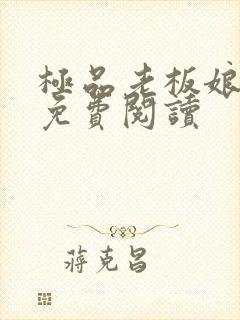 極品老板娘
免費閱讀
蔣克昌